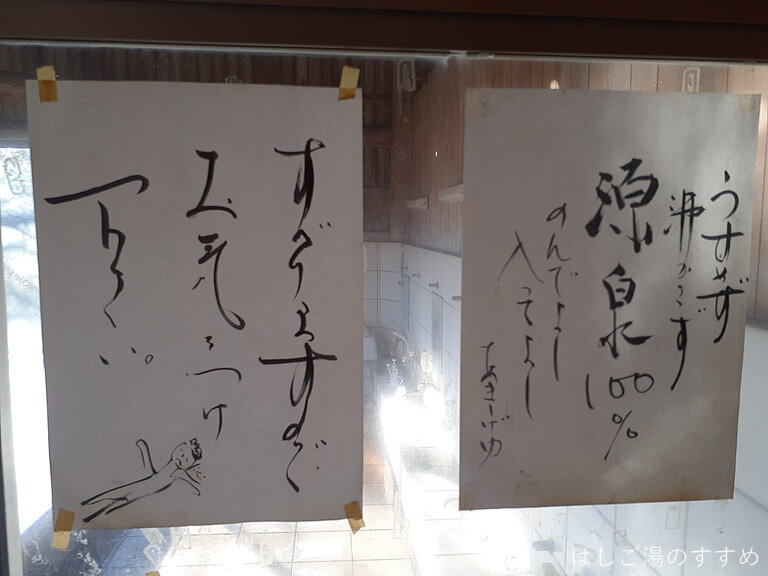 すべりますので
お気をつけ
下さい。
うすめず
沸かさず
源泉100%
のんでよし
入ってよし
はしご湯のすすめ